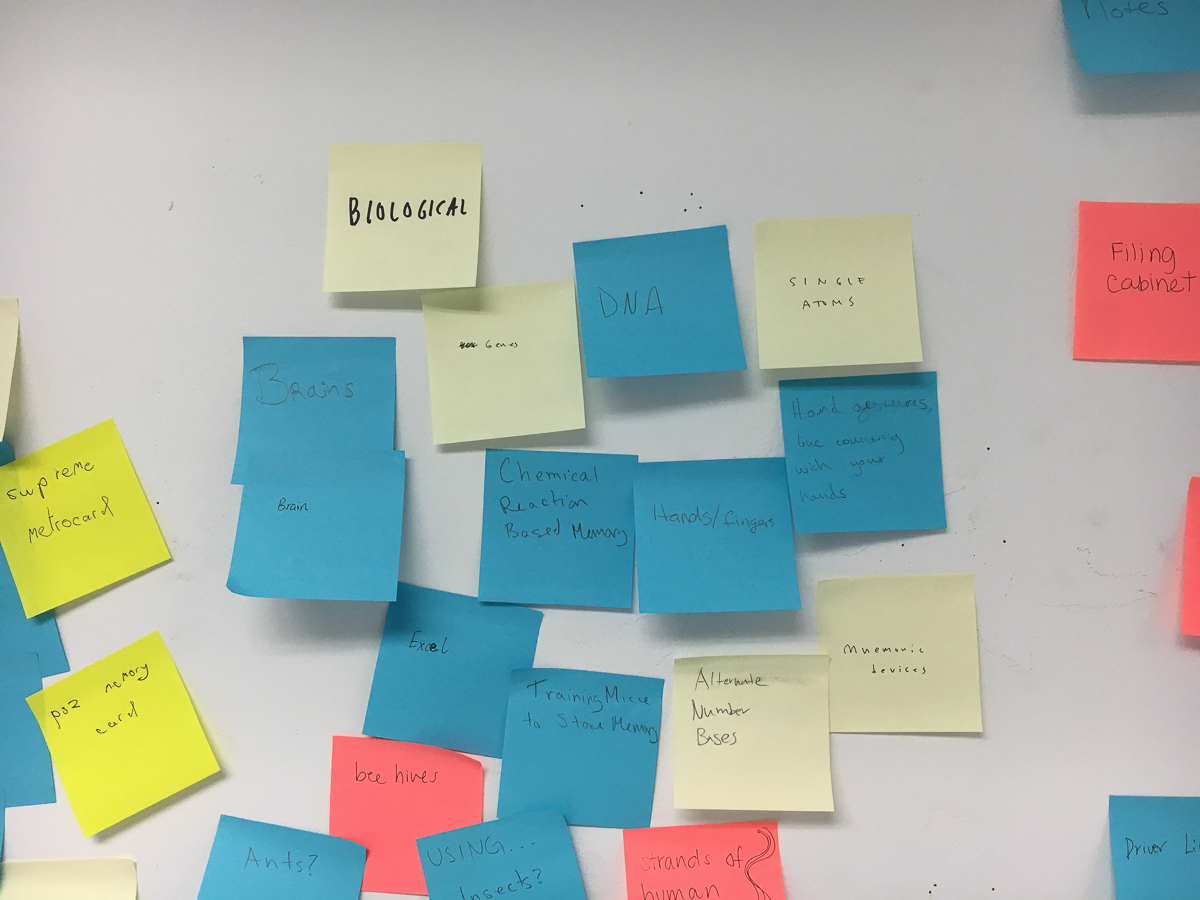 Notes
BIOLOGICAL
Filing
Cabinet
DNA
SINGLE
ATOMS
Genes
Brains
Hand gestures,
like counting
with your
hands
supreme
metrocard
Brain
Chemical
Reaction
Based Memory
Hands/fingers
Excel
Mnemonic
devices
ps2 memory
card
Training Mice
to Store Memory
Alternate
Number
Bases
bee hives
Ants?
USING...
Insects?
strands of
human
Driver Li